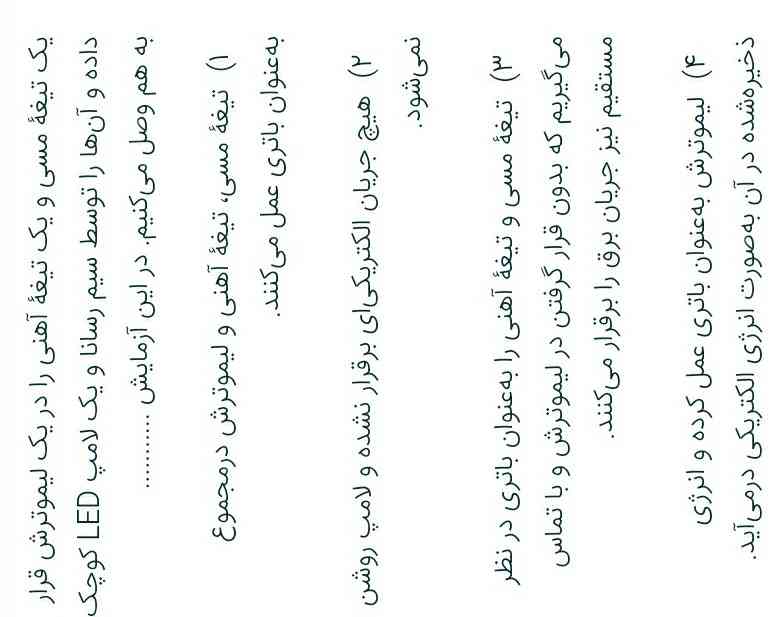 یک تیغهٔ مسی و یک تیغهٔ آهنی را در یک لیموترش قرار
داده و آن‌ها را توسط سیم رسانا و یک لامپ LED کوچک
به هم وصل می‌کنیم. در این آزمایش ............
۱) تیغهٔ مسی، تیغهٔ آهنی و لیموترش درمجموع
به‌عنوان باتری عمل می‌کنند.
۲) هیچ جریان الکتریکی‌ای برقرار نشده و لامپ روشن
نمی‌شود.
۳) تیغهٔ مسی و تیغهٔ آهنی را به‌عنوان باتری در نظر
می‌گیریم که بدون قرار گرفتن در لیموترش و با تماس
مستقیم نیز جریان برق را برقرار می‌کنند.
۴) لیموترش به‌عنوان باتری عمل کرده و انرژی
ذخیره‌شده در آن به‌صورت انرژی الکتریکی درمی‌آید.